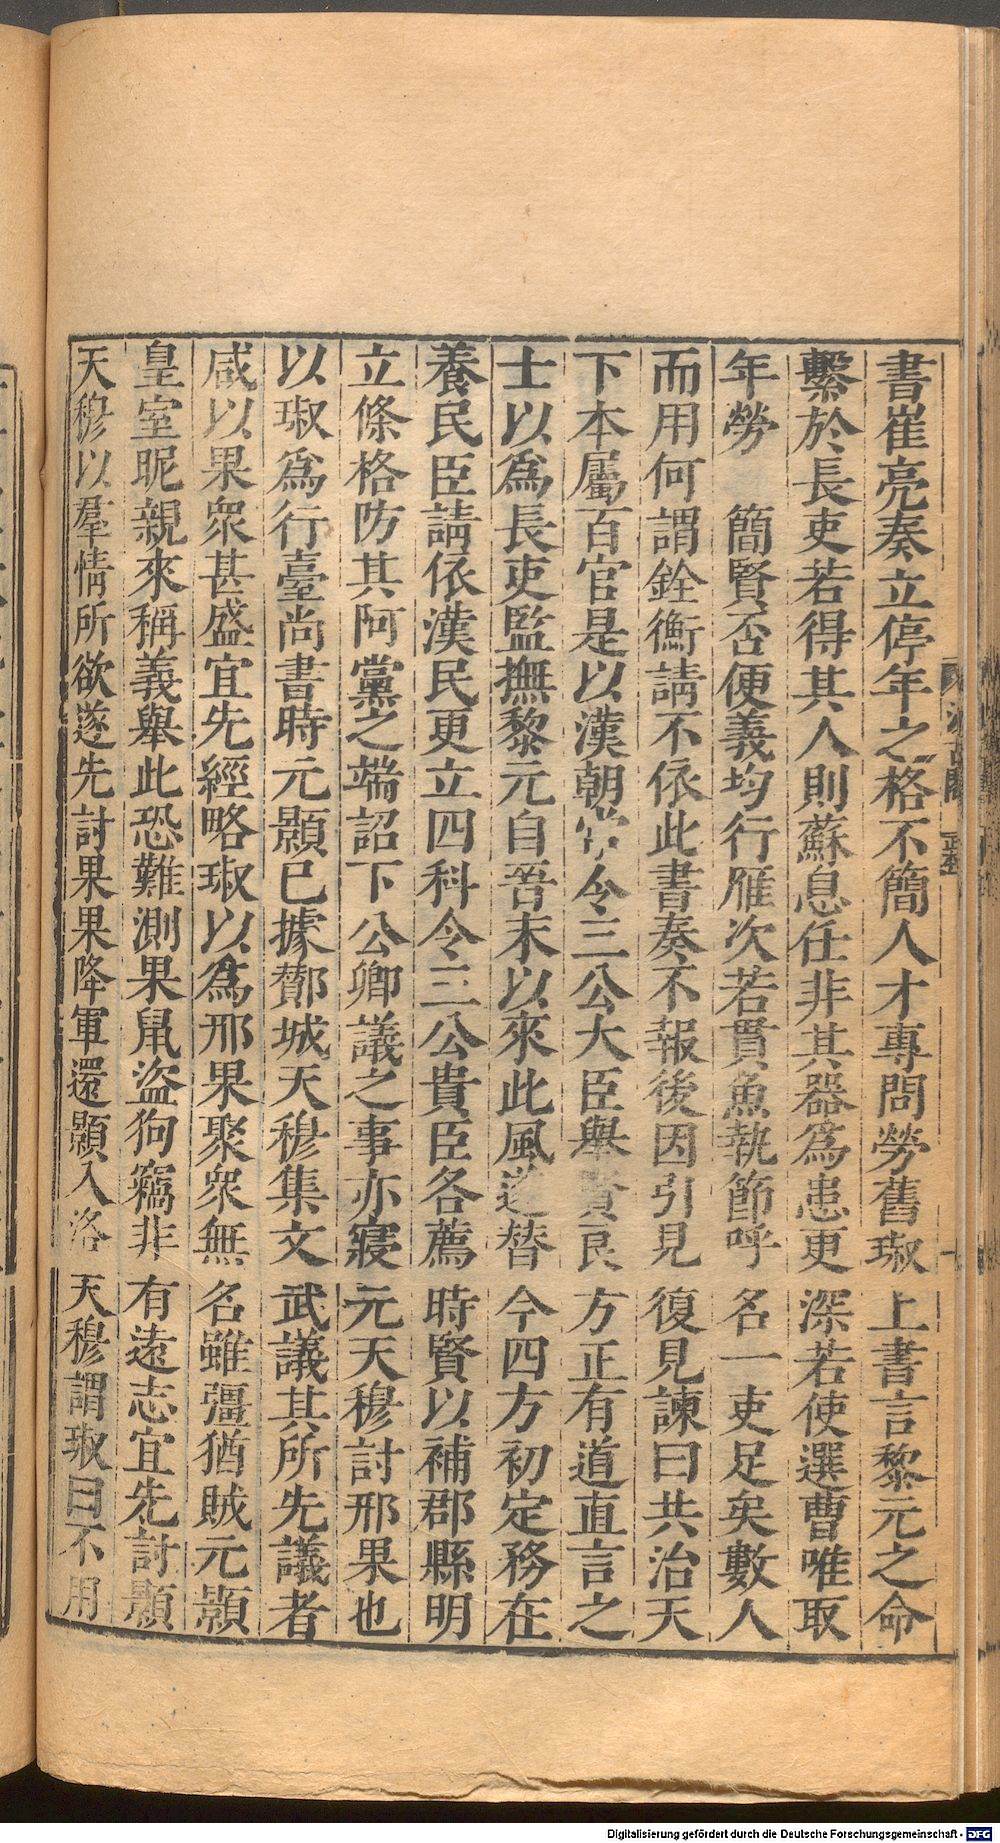 書崔亮奏立停年之格不簡人才專問勞舊琡上書言黎元之命
繫於長吏若得其人則蘇息任非其器為患更深若使選曹唯取
年勞　簡賢否便義均行雁次若貫魚執節呼名一吏足矣數人
而用何謂銓衡請不依此書奏不報後因引見復見諫曰共治天
下本屬百官是以漢朝常令三公大臣舉賢良方正有道直言之
士以爲長吏監撫黎元自吾末以來此風遂替今四方初定務在
養民臣請依漢民更立四科令三公貴臣各薦時賢以補郡縣明
立條格防其阿黨之端詔下公卿議之事亦寢元天穆討邢果也
以琡爲行臺尚書時元顥已據酇城天穆集文武議其所先議者
咸以果衆甚盛宜先經略琡以爲邢果聚衆無名雖彊猶賊元顥
皇室昵親來稱義舉此恐難測果鼠盜狗竊非有遠志宜先討顥
天穆以羣情所欲遂先討果果降軍還顥入洛天穆謂琡曰不用
汲古閣
Digitalisierung gefördert durch die Deutsche Forschungsgemeinschaft - DFG